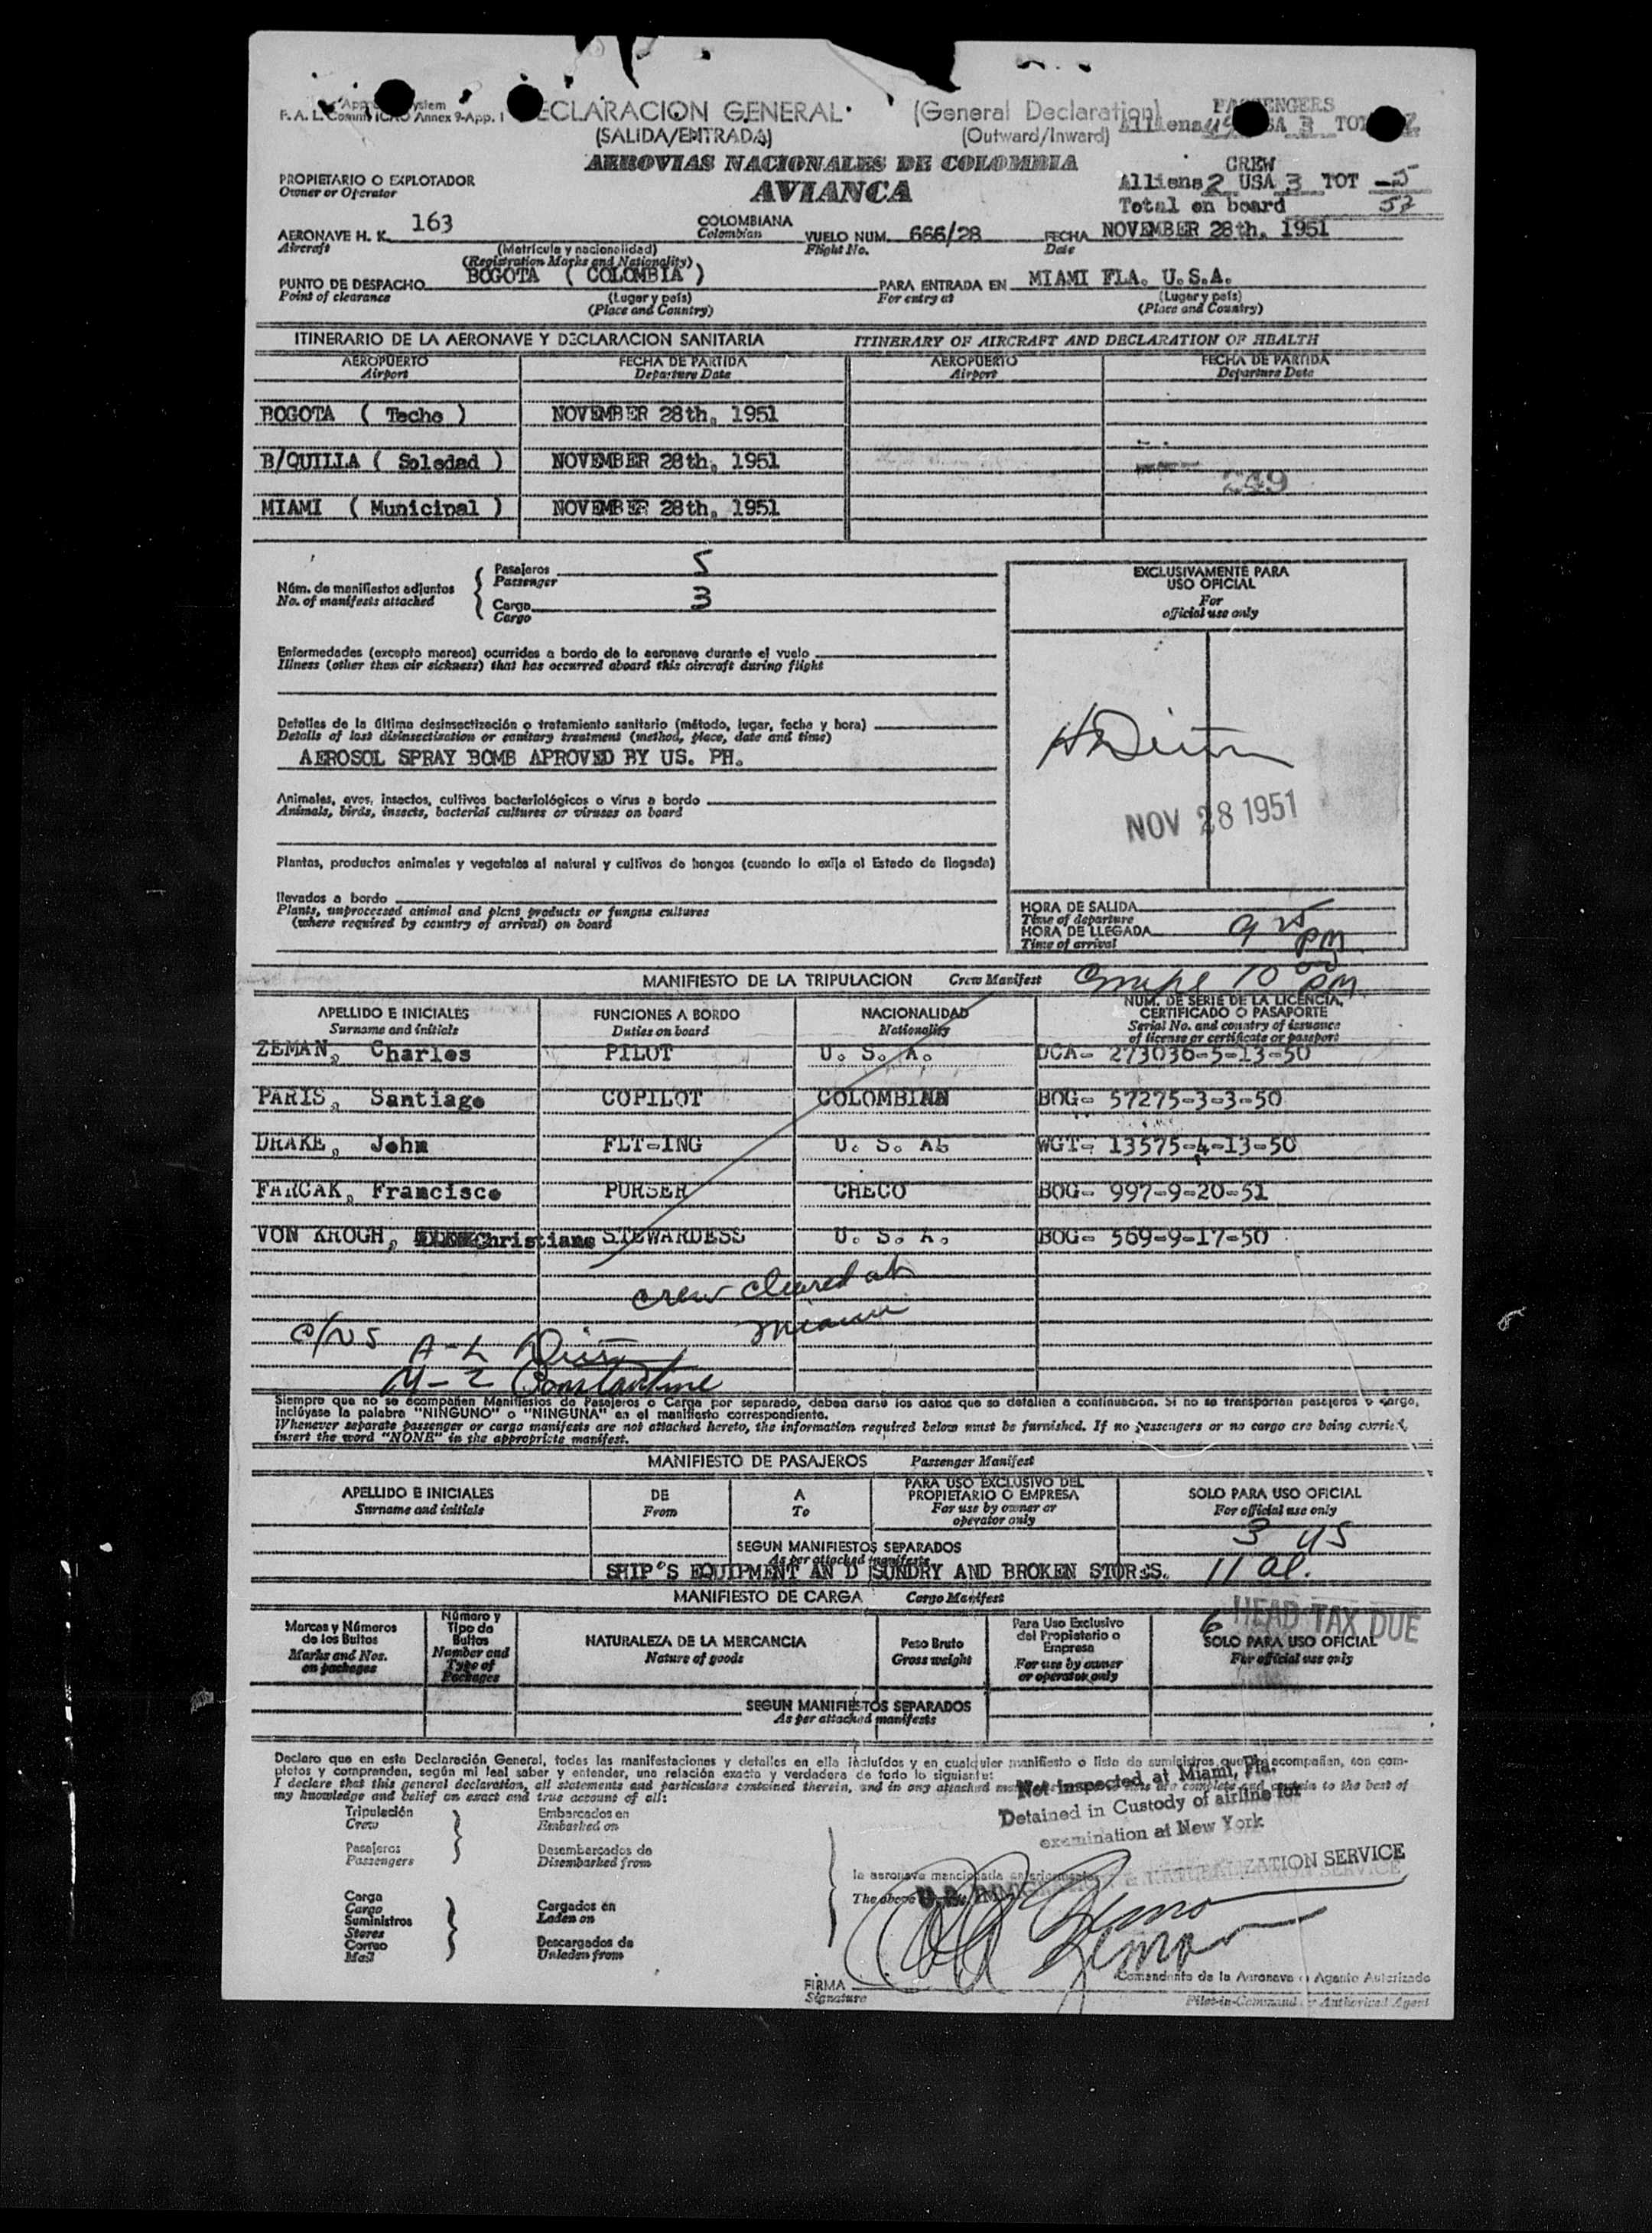 DECLARACION GENERAL (General Declaration) PASSENGERS
F. A. L. Comm ICAO Annex 9-App. 1
(SALIDA/ENTRADA) (Outward/Inward) Alliens USA 3 TOT
AEROVIAS NACIONALES DE COLOMBIA
AVIANCA
CREW
Alliens 2 USA 3 TOT 5
Total on board 52
PROPIETARIO O EXPLOTADOR
Owner or Operator
AERONAVE H. K. 163 COLOMBIANA VUELO NUM. 666/28 FECHA NOVEMBER 28th, 1951
Aircraft (Matrícula y nacionalidad) Colombian Flight No. Date
(Registration Marks and Nationality)
PUNTO DE DESPACHO BOGOTA ( COLOMBIA ) PARA ENTRADA EN MIAMI FLA. U.S.A.
Point of clearance (Lugar y país) For entry at (Lugar y país)
(Place and Country) (Place and Country)
ITINERARIO DE LA AERONAVE Y DECLARACION SANITARIA ITINERARY OF AIRCRAFT AND DECLARATION OF HEALTH
AEROPUERTO FECHA DE PARTIDA AEROPUERTO FECHA DE PARTIDA
Airport Departure Date Airport Departure Date
BOGOTA ( Techo ) NOVEMBER 28th, 1951
B/QUILLA ( Soledad ) NOVEMBER 28th, 1951
249
MIAMI ( Municipal ) NOVEMBER 28th, 1951
Núm. de manifiestos adjuntos
No. of manifests attached
Pasajeros 5
Passenger
Cargo 3
Cargo
EXCLUSIVAMENTE PARA
USO OFICIAL
For
official use only
Enfermedades (excepto mareos) ocurridas a bordo de la aeronave durante el vuelo
Illness (other than air sickness) that has occurred aboard this aircraft during flight
Detalles de la última desinsectización o tratamiento sanitario (método, lugar, fecha y hora)
Details of last disinsectization or sanitary treatment (method, place, date and time)
AEROSOL SPRAY BOMB APROVED BY US. PH.
Animales, aves, insectos, cultivos bacteriológicos o virus a bordo
Animals, birds, insects, bacterial cultures or viruses on board
NOV 28 1951
Plantas, productos animales y vegetales al natural y cultivos de hongos (cuando lo exija el Estado de llegada)
llevados a bordo
Plants, unprocessed animal and plant products or fungus cultures
(where required by country of arrival) on board
HORA DE SALIDA
Time of departure
HORA DE LLEGADA 9 25 PM
Time of arrival
MANIFIESTO DE LA TRIPULACION Crew Manifest 10 00 PM
APELLIDO E INICIALES FUNCIONES A BORDO NACIONALIDAD NUM. DE SERIE DE LA LICENCIA, CERTIFICADO O PASAPORTE
Surname and initials Duties on board Nationality Serial No. and country of issuance of license or certificate or passport
ZEMAN, Charles PILOT U. S. A. DCA- 273036-5-13-50
PARIS, Santiago COPILOT COLOMBIAN BOG- 57275-3-3-50
DRAKE, John FLT-ING U. S. A. WGT- 13575-4-13-50
FARCAK, Francisco PURSER CHECO BOG- 997-9-20-51
VON KROGH, Christiane STEWARDESS U. S. A. BOG- 569-9-17-50
crew cleared at
Miami
M-Z Constantine
Siempre que no se acompañen Manifiestos de Pasajeros o Carga por separado, deben darse los datos que se detallan a continuación. Si no se transportan pasajeros o carga,
inclúyase la palabra "NINGUNO" o "NINGUNA" en el manifiesto correspondiente.
Whenever separate passenger or cargo manifests are not attached hereto, the information required below must be furnished. If no passengers or no cargo are being carried,
insert the word "NONE" in the appropriate manifest.
MANIFIESTO DE PASAJEROS Passenger Manifest
APELLIDO E INICIALES DE A PARA USO EXCLUSIVO DEL PROPIETARIO O EMPRESA SOLO PARA USO OFICIAL
Surname and initials From To For use by owner or operator only For official use only
3 US
SEGUN MANIFIESTOS SEPARADOS
As per attached manifests
SHIP'S EQUIPMENT AN D SUNDRY AND BROKEN STORES. 11 al.
MANIFIESTO DE CARGA Cargo Manifest
6 HEAD TAX DUE
Marcas y Números de los Bultos Número y Tipo de Bultos NATURALEZA DE LA MERCANCIA Peso Bruto Para Uso Exclusivo del Propietario o Empresa SOLO PARA USO OFICIAL
Marks and Nos. on packages Number and Type of Packages Nature of goods Gross weight For use by owner or operator only For official use only
SEGUN MANIFIESTOS SEPARADOS
As per attached manifests
Declaro que en esta Declaración General, todas las manifestaciones y detalles en ella incluídos y en cualquier manifiesto o lista de suministros que la acompañan, son com-
pletos y comprenden, según mi leal saber y entender, una relación exacta y verdadera de todo lo siguiente:
I declare that this general declaration, all statements and particulars contained therein, and in any attached are complete and contain to the best of
my knowledge and belief an exact and true account of all:
Not inspected at Miami, Fla.
Detained in Custody of airline for
examination at New York
Tripulación Embarcados en
Crew Embarked on
Pasajeros Desembarcados de
Passengers Disembarked from
la aeronave mencionada anteriormente
The above
U.S. IMMIGRATION & NATURALIZATION SERVICE
Carga
Cargo
Suministros
Stores
Correo
Mail
Cargados en
Laden on
Descargados de
Unladen from
FIRMA Comandante de la Aeronave o Agente Autorizado
Signature Pilot-in-Command or Authorized Agent